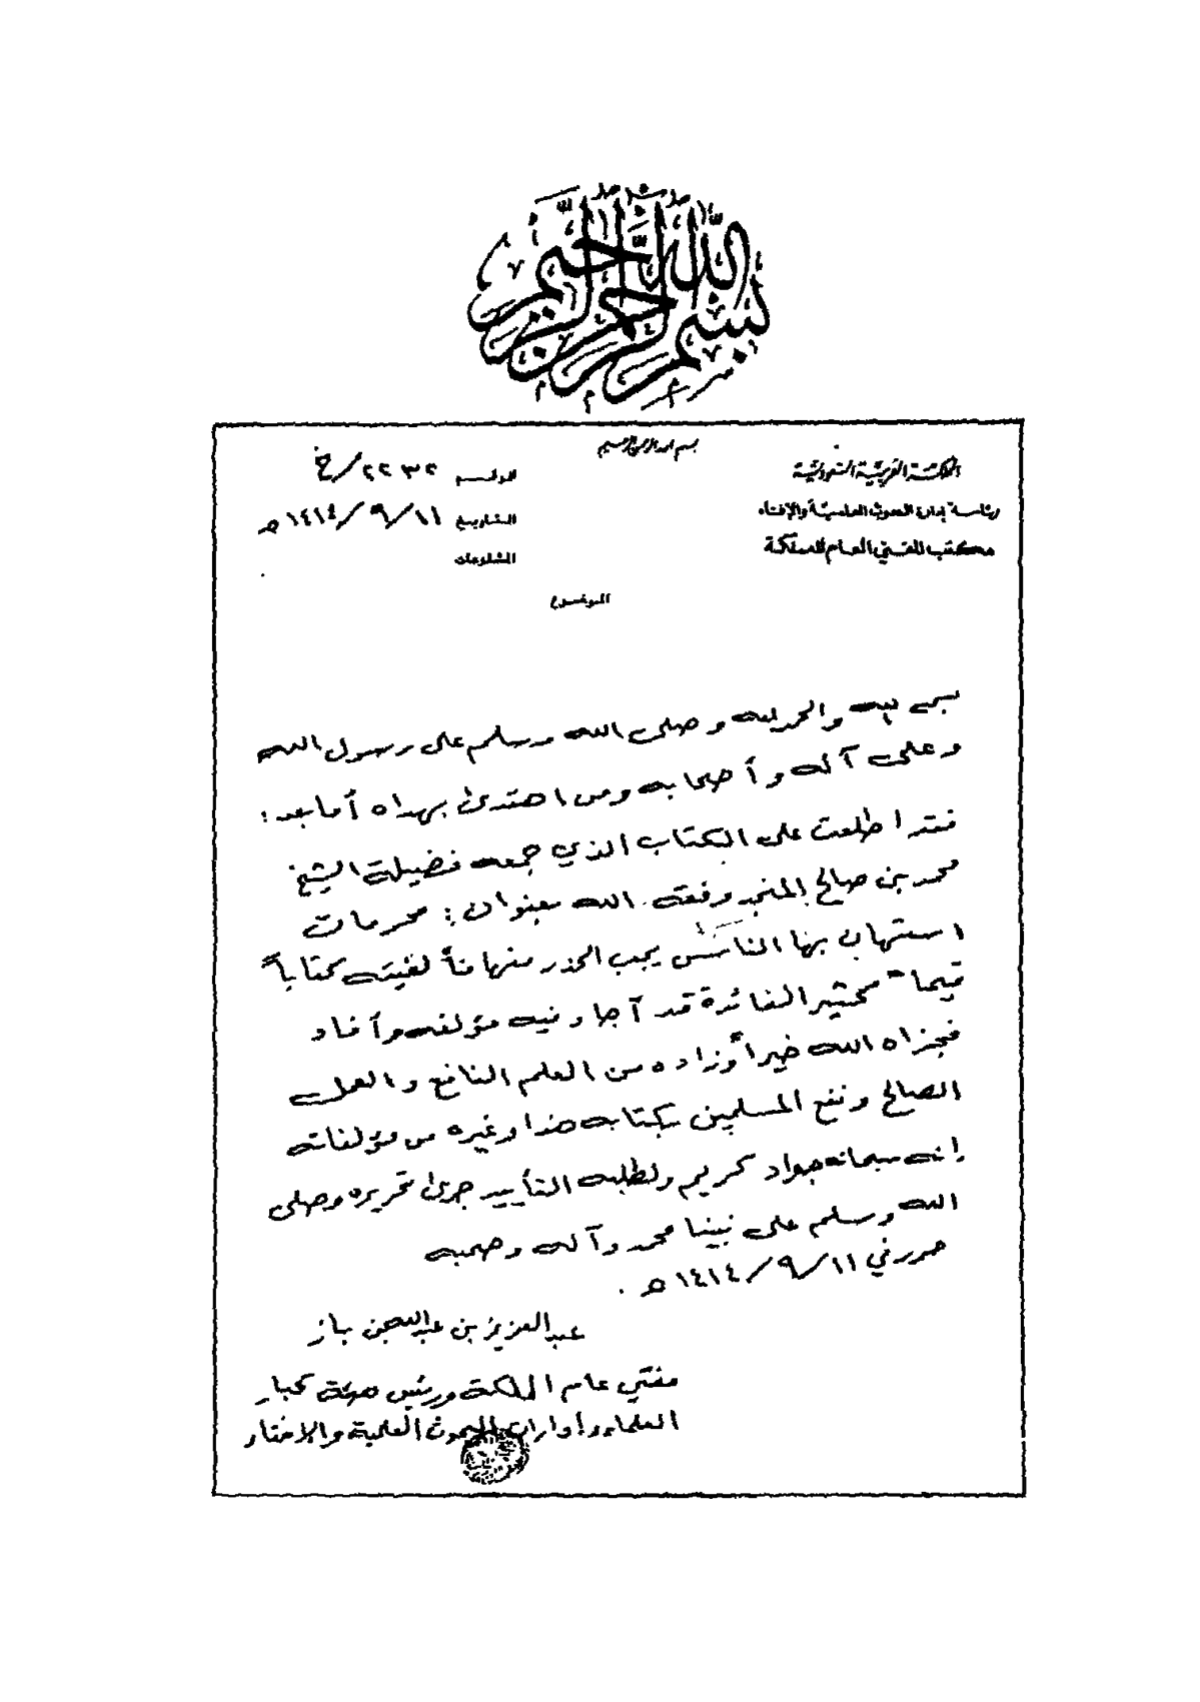 بسم الله الرحمن الرحيم
بسم الله الرحمن الرحيم
المملكة العربية السعودية
رئاسة إدارة البحوث العلمية والإفتاء
مكتب المفتي العام للمملكة
الرقم ٢٢٣٢/خ
التاريخ ١١/٩/١٤١٤ه
المشفوعات
الموضوع
بسم الله والحمد لله وصلى الله وسلم على رسول الله
وعلى آله وأصحابه ومن اهتدى بهداه أما بعد :
فقد اطلعت على الكتاب الذي جمعه فضيلة الشيخ
محمد بن صالح المنجد وفقه الله بعنوان : محرمات
استهان بها الناس يجب الحذر منها فألفيته كتاباً
قيما كثير الفائدة قد أجاد فيه مؤلفه وأفاد
فجزاه الله خيراً وزاده من العلم النافع والعمل
الصالح ونفع المسلمين بكتابه هذا وغيره من مؤلفاته
إنه سبحانه جواد كريم ولطلبه التأييد جرى تحريره وصلى
الله وسلم على نبينا محمد وآله وصحبه
حرر في ١١/٩/١٤١٤ ه .
عبد العزيز بن عبد الله بن باز
مفتي عام المملكة ورئيس هيئة كبار
العلماء وإدارات البحوث العلمية والإفتاء